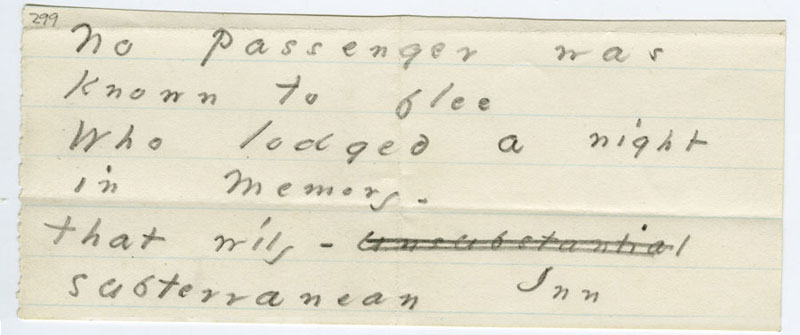 299
No passenger was
known to flee
Who lodged a night
in Memory -
that wily - unsubstantial
subterranean Inn